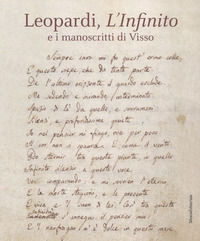 Leopardi, L'Infinito
e i manoscritti di Visso
Sempre caro mi fu quest'ermo colle,
E questa siepe, che da tanta parte
De l'ultimo orizzonte il guardo esclude.
Ma sedendo e mirando, interminato
Spazio di là da quella, e sovrumani
Silenzi, e profondissima quiete
Io nel pensier mi fingo, ove per poco
Il cor non si spaura. E come il vento
Odo stormir tra queste piante, io quello
Infinito silenzio a questa voce
Vo comparando: e mi sovvien l'eterno,
E le morte stagioni, e la presente
E viva, e 'l suon di lei. Così tra questa
s'annega il pensier mio:
E 'l naufragar m'è dolce in questo mare.